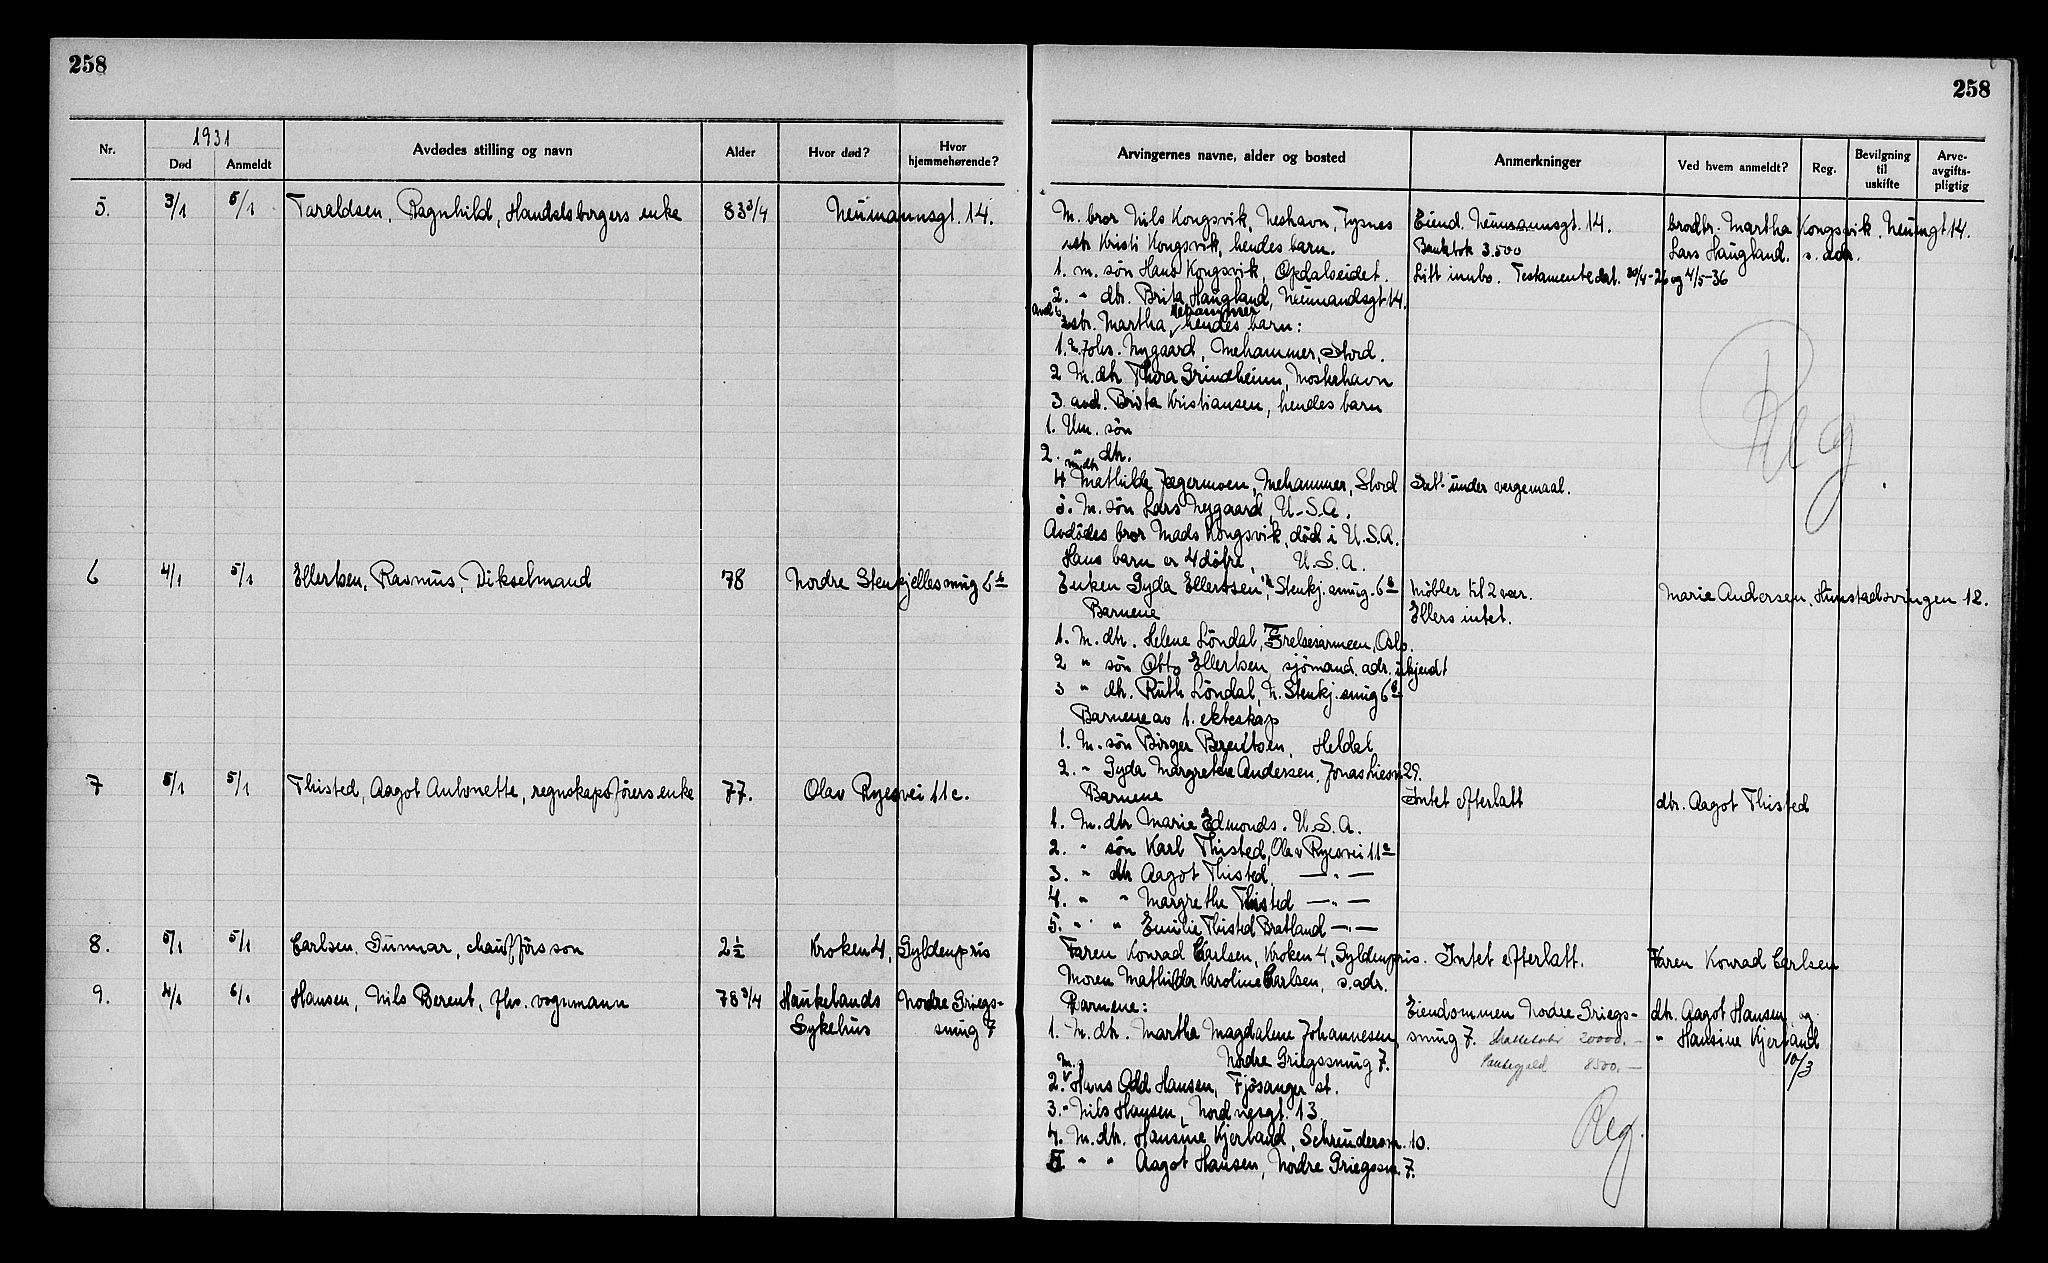 258
258
1931
Nr.
Død
Anmeldt
Avdødes stilling og navn
Alder
Hvor død?
Hvor hjemmehørende?
Arvingernes navne, alder og bosted
Anmerkninger
Ved hvem anmeldt?
Reg.
Bevilgning til uskifte
Arve-avgifts-pligtig
5. 3/1 5/1 Taraldsen, Ragnhild, Handelsborgers enke 83 3/4 Neumannsgt. 14.
M. bror Nils Kongsvik, Neshavn, Tysnes
str Kristi Kongsvik, hendes barn.
1. m. søn Hans Kongsvik, Opdalseidet.
2. " dtr. Brita Haugland, Neumandsgt 14.
avd. str. Martha Mehammer, hendes barn:
1. Johs. Nygaard, Mehammer, Stord.
2 M. dtr Thora Grindheim, Mosterhavn
3. avd. Brita Kristiansen, hendes barn
1. Um. søn
2. " dtr.
4 m. dtr Mathilde Jægermoen, Mehammer, Stord
5. M. søn Lars Nygaard, U.S.A.
Avdødes bror Mads Kongsvik, død i U.S.A.
Hans barn er 4 døtre, U.S.A.
Eiend. Neumannsgt. 14.
Bankbok 3.500
Litt innbo. Testamente dat. 30/4-26 og 4/5-36
Satt under vergemaal.
brordtr. Martha Kongsvik, Neumgt 14.
Lars Haugland. s. adr.
Reg
6 4/1 5/1 Ellertsen, Rasmus, Dikselmand 78 Nordre Stenkjellesmug 6 b
Enken Gyda Ellertsen, N. Stenkj. smug. 6 b
Barnene
1. M. dtr. Helene Løndal, Frelsesarmeen, Oslo.
2 " søn Otto Ellertsen, sjømand. adr. ukjendt
3 " dtr. Ruth Løndal, N. Stenkj. smug 6 b
Barnene av 1. ekteskap
1. M. søn Birger Berentsen, Heldal
2. " Gyda Margrethe Andersen, Jonas Liesv. 29.
Møbler til 2 vær.
Ellers intet.
Marie Andersen, Hunstadsvingen 12.
7 5/1 5/1 Thisted, Aagot Antonette, regnskapsførers enke 77. Olav Ryesvei 11 c.
Barnene
1. M. dtr Marie Edmonds. U.S.A.
2. " søn Karl Thisted, Olav Ryesvei 11 c
3. " dtr Aagot Thisted — " —
4. " " Margrethe Thisted — " —
5. " " Emilie Thisted Bratland — " —
Intet efterlatt
dtr. Aagot Thisted
8. 5/1 5/1 Carlsen, Gunnar, chaufførs søn 2½ Kroken 4, Gyldenpris
Faren Konrad Carlsen, Kroken 4, Gyldenpris.
Moren Mathilda Karoline Carlsen, s. adr.
Intet efterlatt.
Faren Konrad Carlsen
9. 4/1 6/1 Hansen, Nils Berent, fhv. vognmann 78 3/4 Haukelands Sykehus Nordre Griegs-smug 7
Barnene:
1. M. dtr. Martha Magdalene Johannesen,
Nordre Griegssmug 7.
2. M. Hans Odd Hansen, Fjøsanger st.
3. " Nils Hansen, Nordnesgt. 13.
4. M. dtr. Hansine Kjerland, Schreudersm. 10.
5. " " Aagot Hansen, Nordre Griegssm. 7.
Eiendommen Nordre Griegs-
smug 7. Skattetakst 20000.-
Pantegjeld 8500.-
Reg.
dtr. Aagot Hansen og
" Hansine Kjerland
10/3